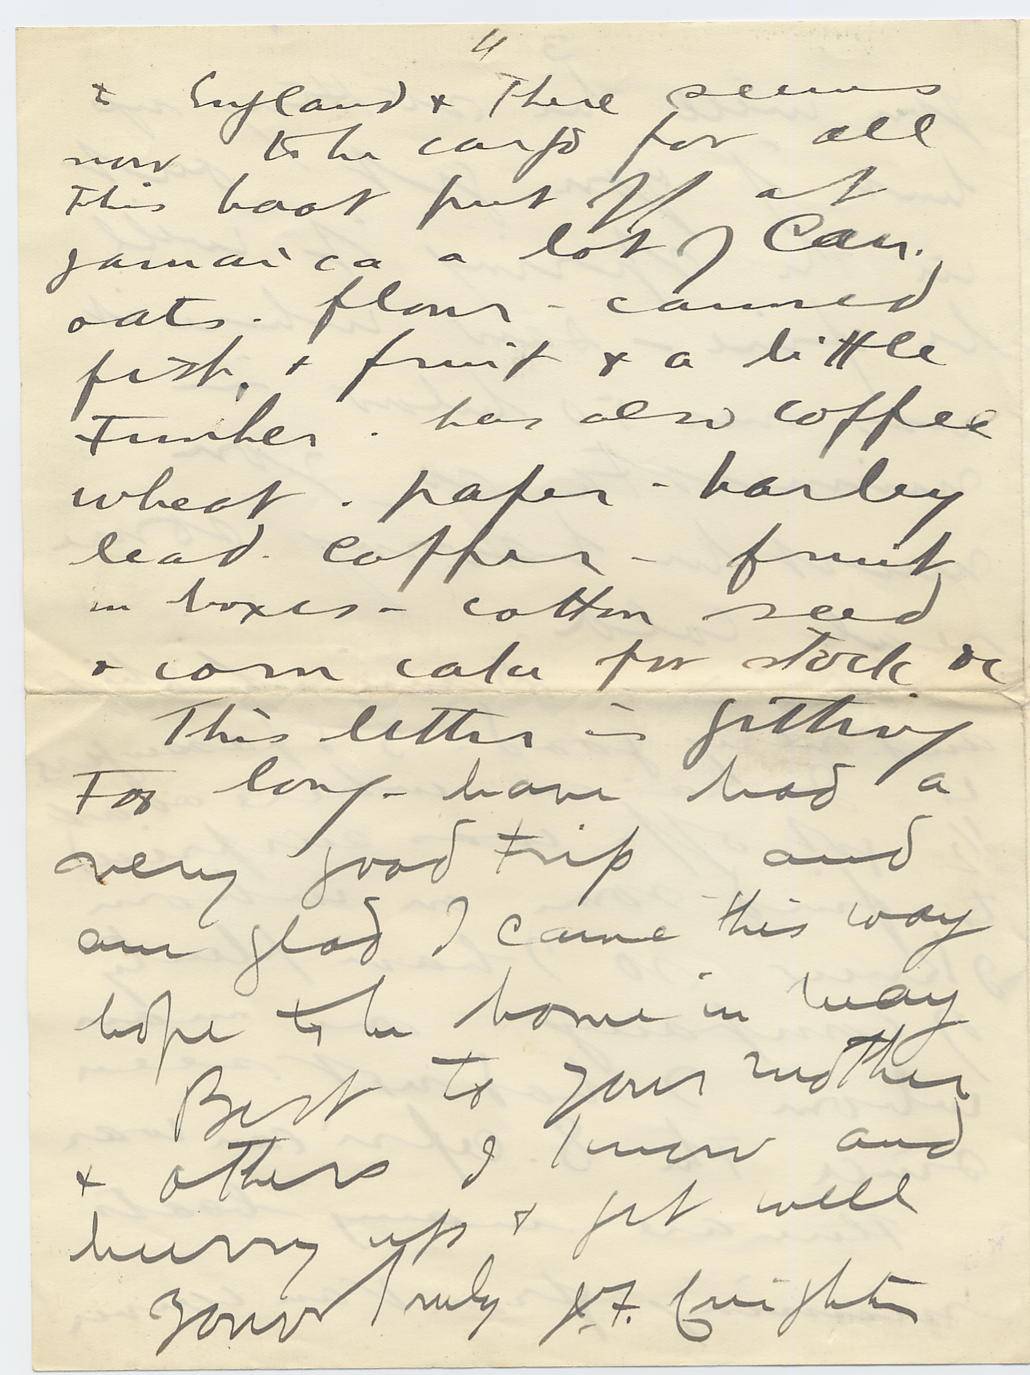 4
to England & There seems
now to be cargo for all
This boat put off at
Jamaica a lot of Can.
oats. flour - canned
fish, & fruit & a little
Timber. has also coffee
wheat. paper - barley
lead. Copper - fruit
in boxes - cotton seed
& corn cake for stock &c
This letter is getting
Too long - have had a
very good trip and
am glad I came this way
hope to be home in May
Best to your mother
& others I know and
hurry up & get well
Yours Truly